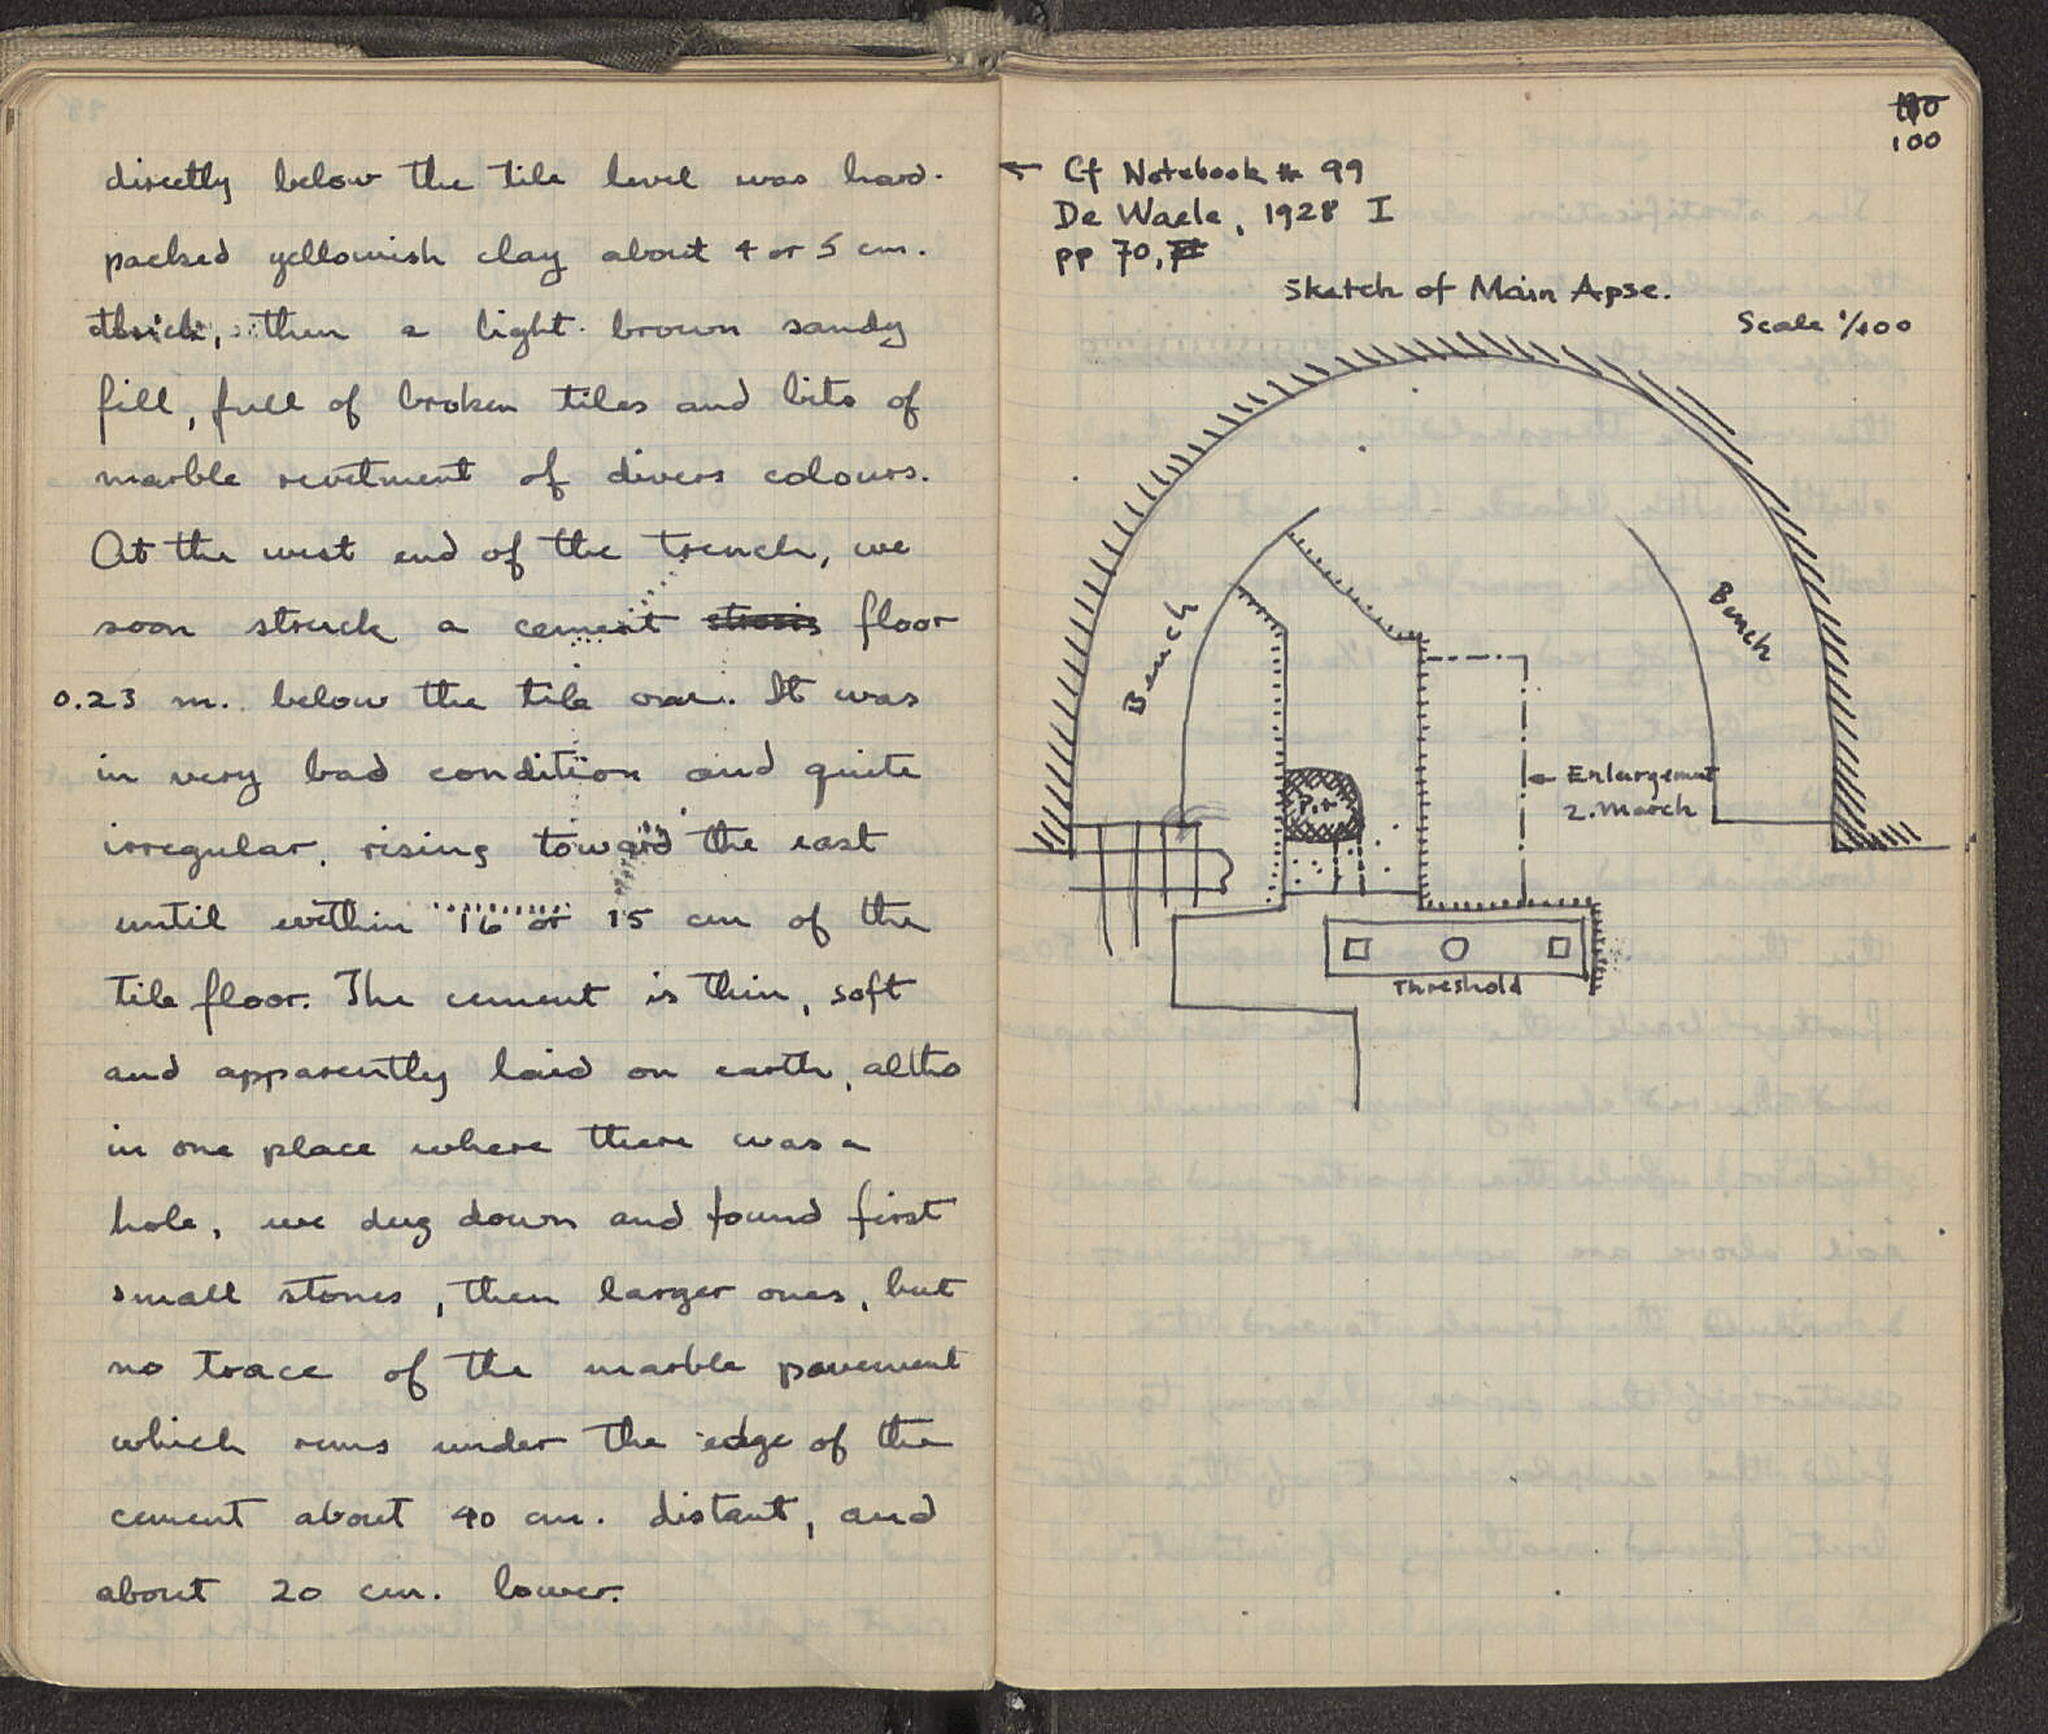 directly below the tile level was hard-
packed yellowish clay about 4 or 5 cm.
thick, then a light brown sandy
fill, full of broken tiles and bits of
marble revetment of divers colours.
At the west end of the trench, we
soon struck a cement floor
0.23 m. below the tile one. It was
in very bad condition and quite
irregular, rising toward the east
until within 16 or 15 cm of the
tile floor. The cement is thin, soft
and apparently laid on earth, altho
in one place where there was a
hole, we dug down and found first
small stones, then larger ones, but
no trace of the marble pavement
which runs under the edge of the
cement about 40 cm. distant, and
about 20 cm. lower.
100
← Cf Notebook # 99
De Waele, 1928 I
pp 70, 71
Sketch of Main Apse.
Scale 1/100
Bench
Bench
Pit
← Enlargement
2. March
Threshold